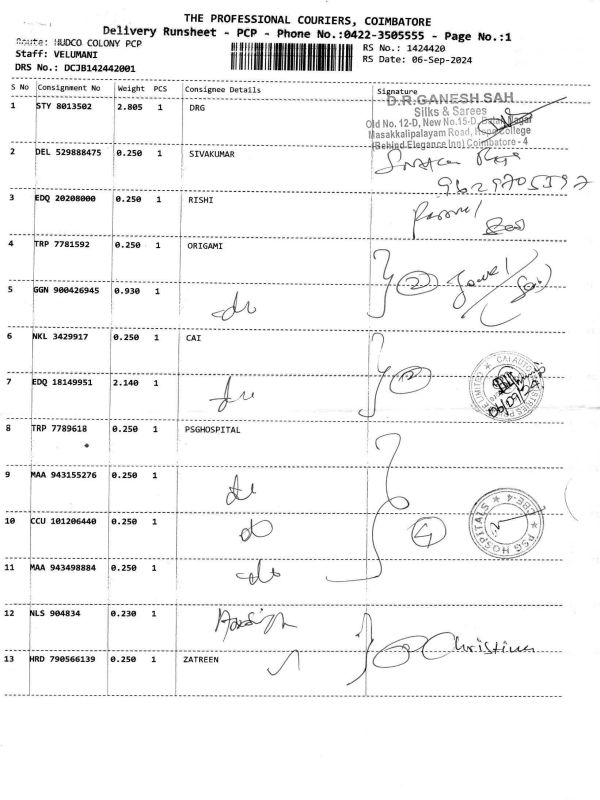 THE PROFESSIONAL COURIERS, COIMBATORE
Delivery Runsheet - PCP - Phone No.:0422-3505555 - Page No.:1
Route: HUDCO COLONY PCP
RS No.: 1424420
Staff: VELUMANI
RS Date: 06-Sep-2024
DRS No.: DCJB142442001
S No Consignment No Weight PCS Consignee Details Signature
1 STY 8013502 2.805 1 DRG
D.R.GANESH SAH
Silks & Sarees
Old No. 12-D, New No.15-D,
Masakkalipalayam Road, Hope College
(Behind Elegance Inn) Coimbatore - 4
2 DEL 529888475 0.250 1 SIVAKUMAR
3 EDQ 20208000 0.250 1 RISHI
4 TRP 7781592 0.250 1 ORIGAMI
2
5 GGN 900426945 0.930 1
6 NKL 3429917 0.250 1 CAI
7 EDQ 18149951 2.140 1
8 TRP 7789618 0.250 1 PSGHOSPITAL
9 MAA 943155276 0.250 1
do
10 CCU 101206440 0.250 1
do
4
PSG HOSPITALS CBE-4
11 MAA 943498884 0.250 1
do
12 NLS 904834 0.230 1
Christina
13 HRD 790566139 0.250 1 ZATREEN